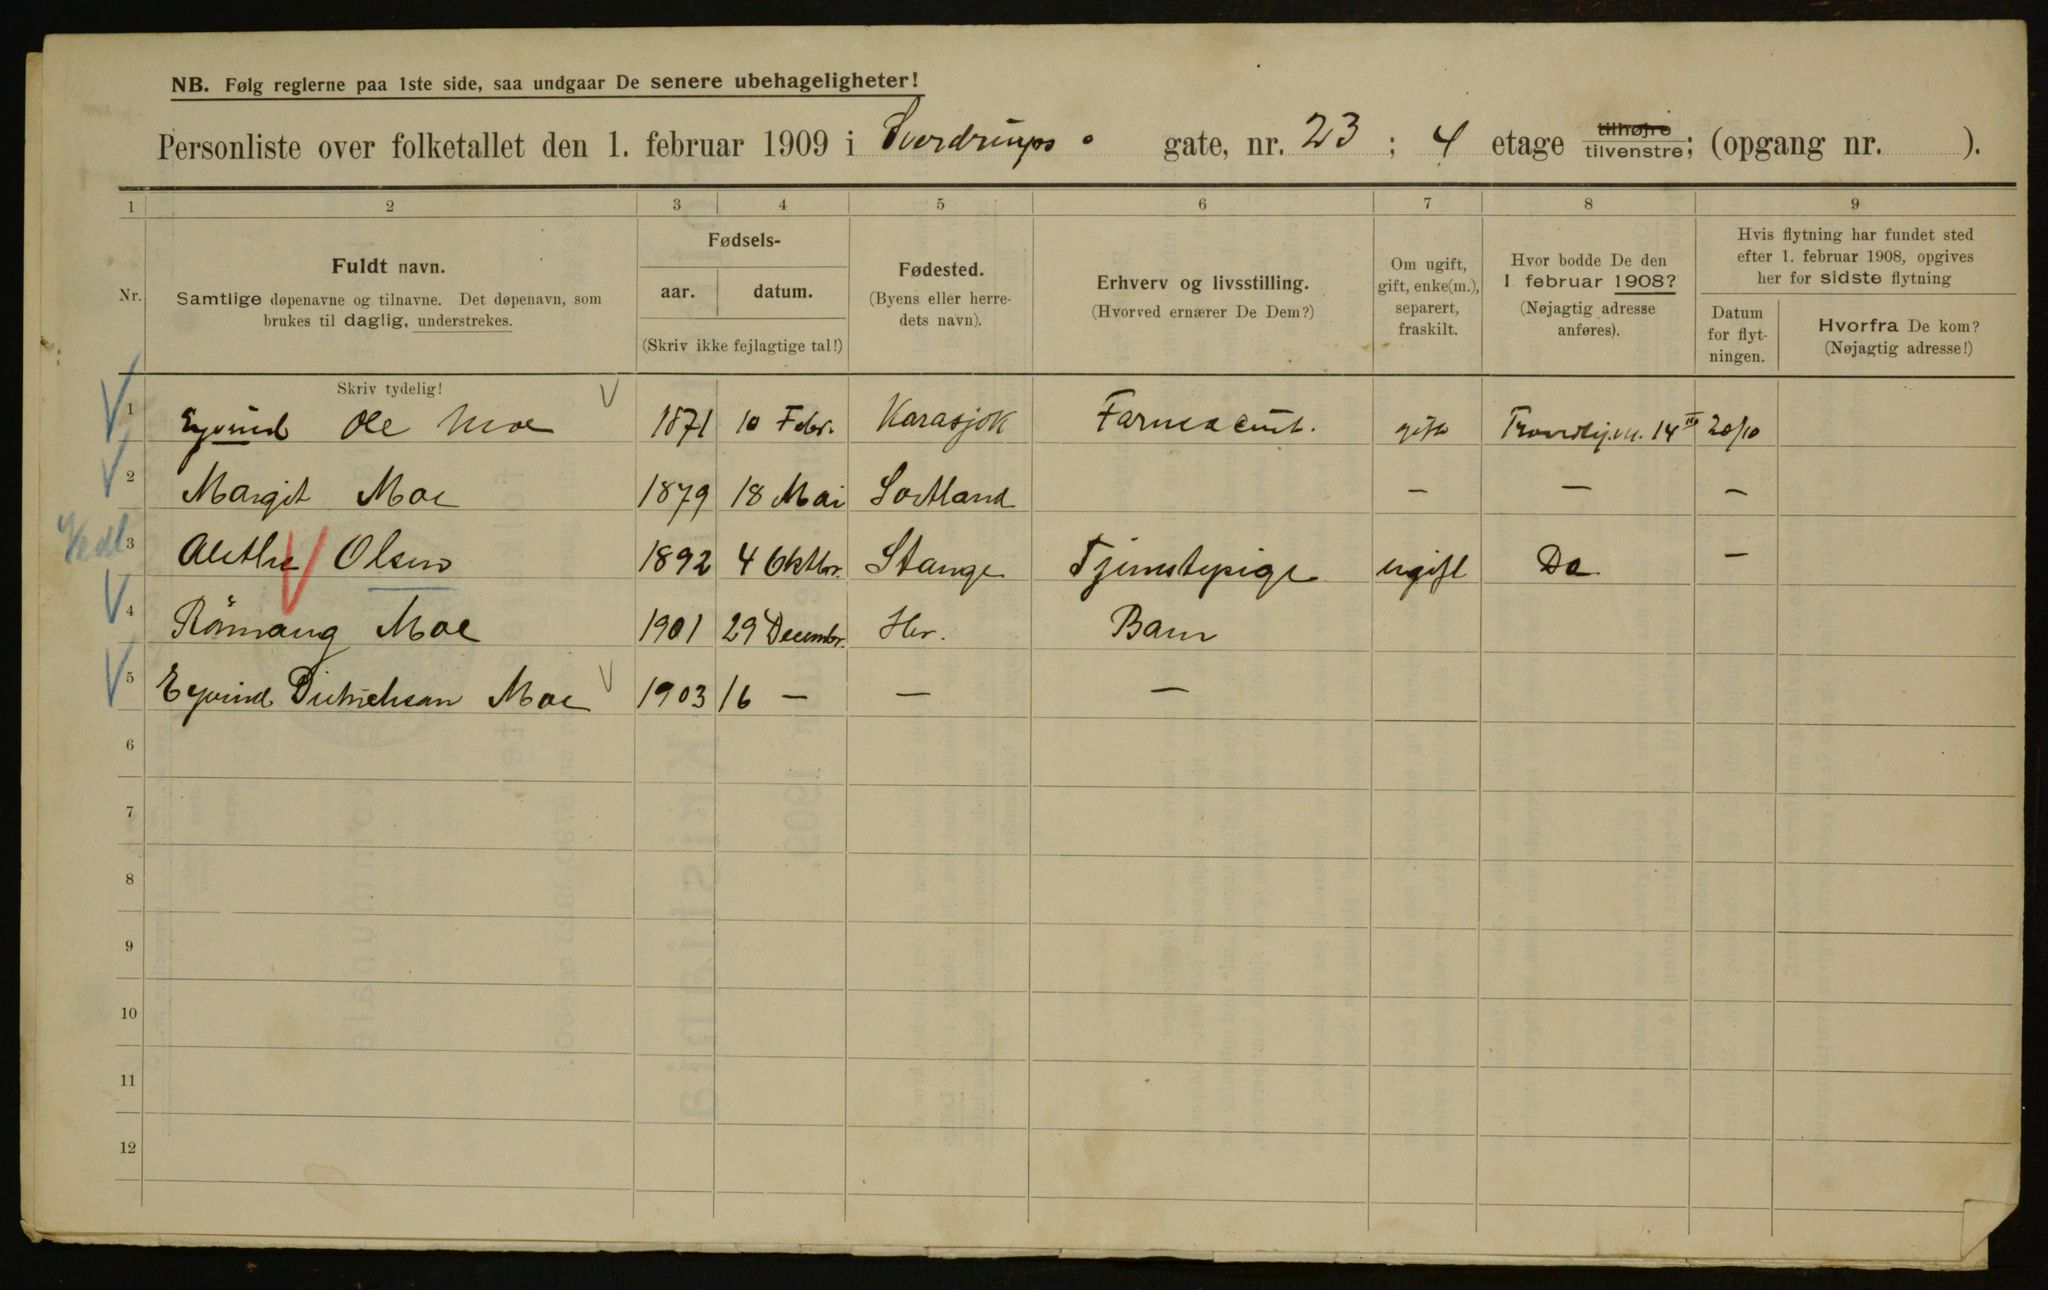 NB. Følg reglerne paa 1ste side, saa undgaar De senere ubehageligheter!
Personliste over folketallet den 1. februar 1909 i Sverdrups gate, nr. 23; 4 etage tilhøjre tilvenstre; (opgang nr. ).
1 2 3 4 5 6 7 8 9
Nr.
Fuldt navn.
Samtlige døpenavne og tilnavne. Det døpenavn, som
brukes til daglig, understrekes.
Fødsels-
aar. datum.
(Skriv ikke fejlagtige tal!)
Fødested.
(Byens eller herre-
dets navn).
Erhverv og livsstilling.
(Hvorved ernærer De Dem?)
Om ugift,
gift, enke(m.),
separert,
fraskilt.
Hvor bodde De den
1 februar 1908?
(Nøjagtig adresse
anføres).
Hvis flytning har fundet sted
efter 1. februar 1908, opgives
her for sidste flytning
Datum
for flyt-
ningen.
Hvorfra De kom?
(Nøjagtig adresse!)
Skriv tydelig!
1 Eyvind Ole Moe 1871 10 Febr. Karasjok gift 14 III 20/10
2 Margit Moe 1879 18 Mai Sortland — — —
3 Alethe Olsen 1892 4 Oktbr. Stange Tjenestepige ugift Do —
4 Rønnaug Moe 1901 29 Decembr. Her. Barn
5 Eyvind Dietrichson Moe 1903 16 — — —
6
7
8
9
10
11
12